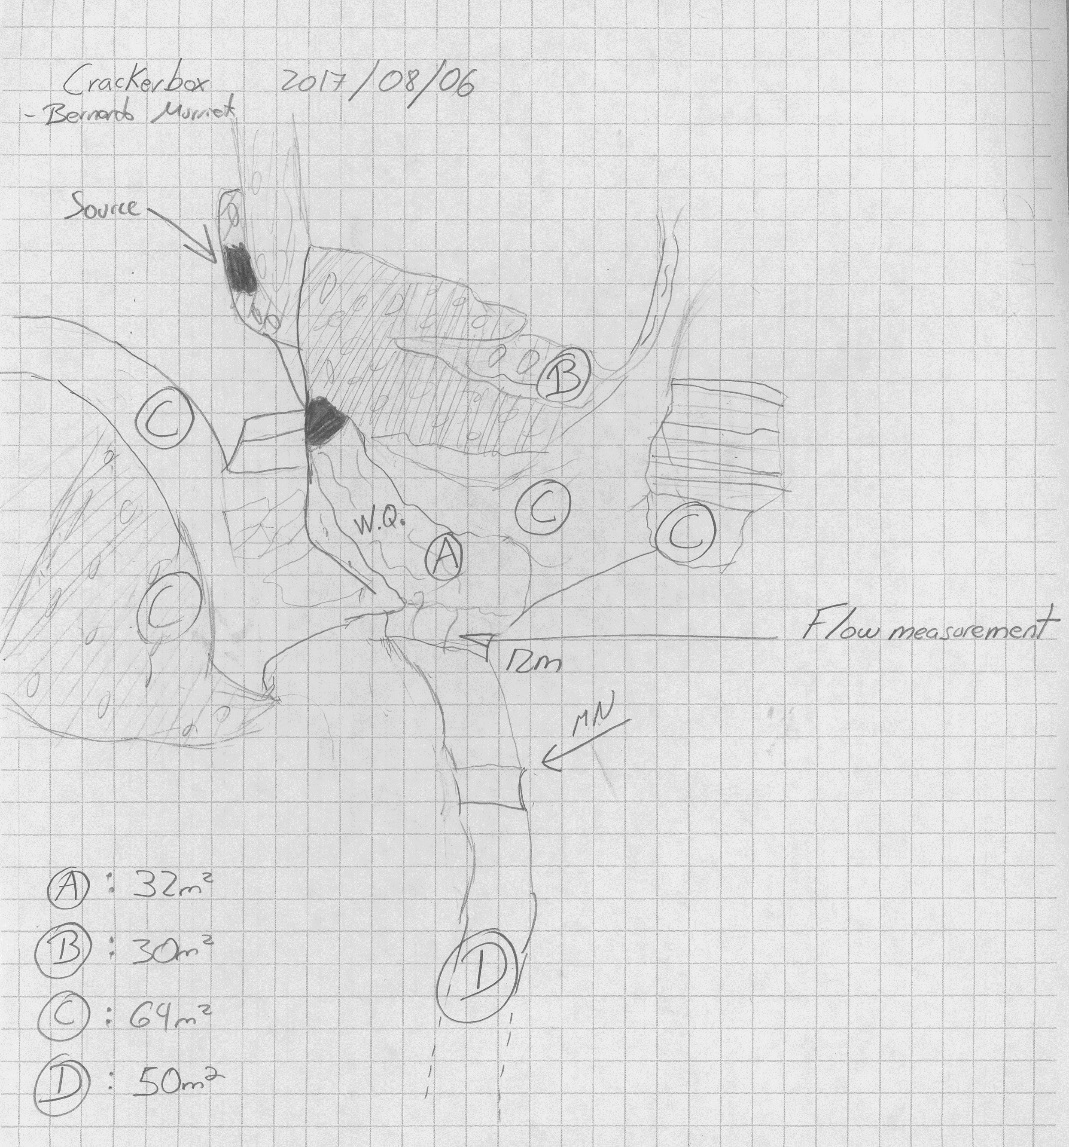 Crackerbox 2017/08/06
- Bernardo
Source
B
C
C
W.Q.
C
A
C
Flow measurement
12m
MN
A : 32m²
B : 30m²
C : 64m²
D
D : 50m²